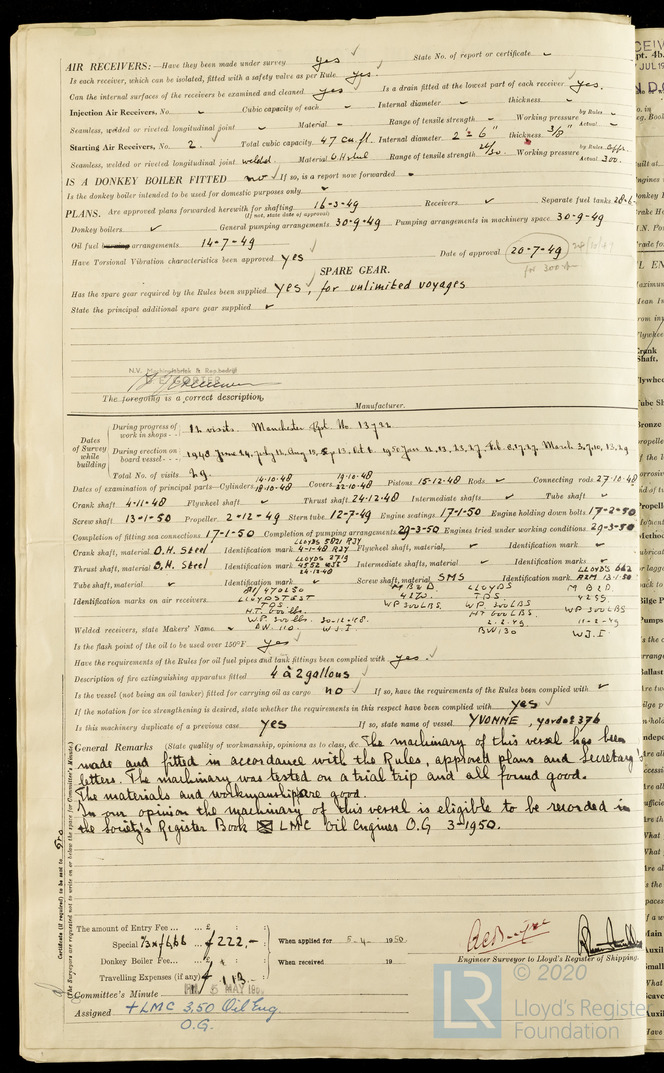 AIR RECEIVERS:—Have they been made under survey yes ✓ State No. of report or certificate ✓
Is each receiver, which can be isolated, fitted with a safety valve as per Rule yes.
Can the internal surfaces of the receivers be examined and cleaned yes ✓ Is a drain fitted at the lowest part of each receiver yes.
Injection Air Receivers, No. ✓ Cubic capacity of each ✓ Internal diameter ✓ thickness ✓
Seamless, welded or riveted longitudinal joint ✓ Material ✓ Range of tensile strength ✓ Working pressure by Rules ✓ Actual ✓
Starting Air Receivers, No. 2. Total cubic capacity 47 cu.ft. Internal diameter 2' 6" thickness 3/8"
Seamless, welded or riveted longitudinal joint welded. Material Range of tensile strength Working pressure by Rules Appr. Actual 300.
IS A DONKEY BOILER FITTED no ✓ If so, is a report now forwarded
Is the donkey boiler intended to be used for domestic purposes only ✓
PLANS. Are approved plans forwarded herewith for shafting 16-3-49 Receivers ✓ Separate fuel tanks 28-6-
(If not, state date of approval)
Donkey boilers ✓ General pumping arrangements 30-9-49 Pumping arrangements in machinery space 30-9-49
Oil fuel arrangements 14-7-49
Have Torsional Vibration characteristics been approved yes Date of approval 20-7-49
SPARE GEAR.
Has the spare gear required by the Rules been supplied yes, for unlimited voyages
State the principal additional spare gear supplied ✓
N.V. Machinefabriek & Rep.bedrijf
The foregoing is a correct description,
Manufacturer.
Dates of Survey while building
During progress of work in shops - - 12 visits. Manchester Rpt. No. 13722
During erection on board vessel - - - 1948 June 24, July 12, Aug 19, Sep 13, Oct 1950 Jan 12, 13, 23, 27, Feb 8, 17, 27, March 3, 7, 10, 13, 29
Total No. of visits 29.
Dates of examination of principal parts—Cylinders 14-10-48 18-10-48 Covers 19-10-48 22-10-48 Pistons 15-12-48 Rods ✓ Connecting rods 27-10-48
Crank shaft 4-11-48 Flywheel shaft ✓ Thrust shaft 24-12-48 Intermediate shafts ✓ Tube shaft ✓
Screw shaft 13-1-50 Propeller 2-12-49 Stern tube 12-7-49 Engine seatings 17-1-50 Engine holding down bolts 17-2-50
Completion of fitting sea connections 17-1-50 Completion of pumping arrangements 29-3-50 Engines tried under working conditions 29-3-50
Crank shaft, material O.H. Steel Identification mark LLOYDS 5821 RJY 4-11-48 RJY Flywheel shaft, material ✓ Identification mark ✓
Thrust shaft, material O.H. Steel Identification mark LLOYDS 2719 4552 WJI 24-12-48 Intermediate shafts, material ✓ Identification marks ✓
Tube shaft, material ✓ Identification mark ✓ Screw shaft, material SMS Identification mark LLOYDS 662 ARM 13-1-50
Identification marks on air receivers.
LLOYDS TEST
T.P.S.
H.T. 600 lbs.
W.P. 300 lbs. 30-12-48
W.J.I.
M B & D.
4270.
WP 300 LBS.
LLOYDS
T.P.S.
WP 300 LBS
HT 600 LBS.
2-2-49
BW130
M B & D.
4259.
WP 300 LBS
11-2-49
W.J.I.
Welded receivers, state Makers' Name
Is the flash point of the oil to be used over 150°F. yes
Have the requirements of the Rules for oil fuel pipes and tank fittings been complied with yes.
Description of fire extinguishing apparatus fitted 4 à 2 gallons
Is the vessel (not being an oil tanker) fitted for carrying oil as cargo no ✓ If so, have the requirements of the Rules been complied with ✓
If the notation for ice strengthening is desired, state whether the requirements in this respect have been complied with yes
Is this machinery duplicate of a previous case YES If so, state name of vessel YVONNE, yard no 376
General Remarks (State quality of workmanship, opinions as to class, &c. The machinery of this vessel has been
made and fitted in accordance with the Rules, approved plans and Secretary's
letters. The machinery was tested on a trial trip and all found good.
The materials and workmanship are good.
In our opinion the machinery of this vessel is eligible to be recorded in
the Society's Register Book LMC Oil Engines O.G 3-1950.
Certificate (if required) to be sent to
(The Surveyors are requested not to write on or below the space for Committee's Minute.)
The amount of Entry Fee ... £ : :
Special £ 222.-
Donkey Boiler Fee ... £ : :
Travelling Expenses (if any) £ 113.
When applied for 5-4- 1950
When received 19
Engineer Surveyor to Lloyd's Register of Shipping.
Committee's Minute FRI. 5 MAY 1950
Assigned +LMC 3,50 Oil Eng.
O.G.
© 2020
LR
Lloyd's Register
Foundation